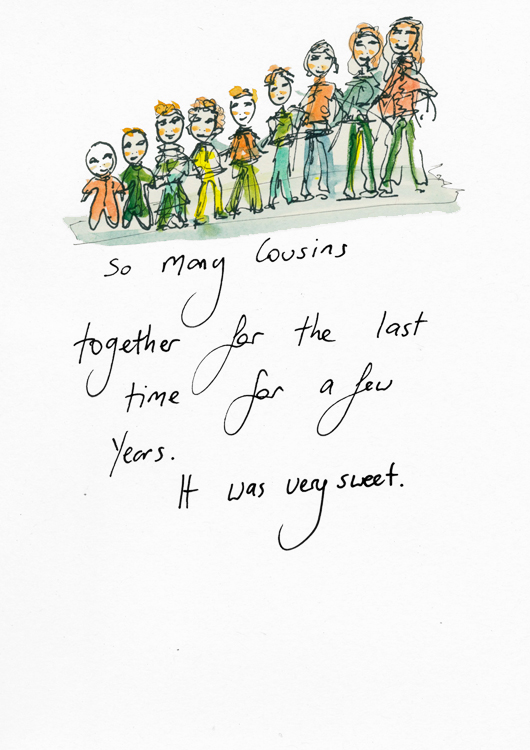 So many Cousins
together for the last
time for a few
Years.
It was very sweet.